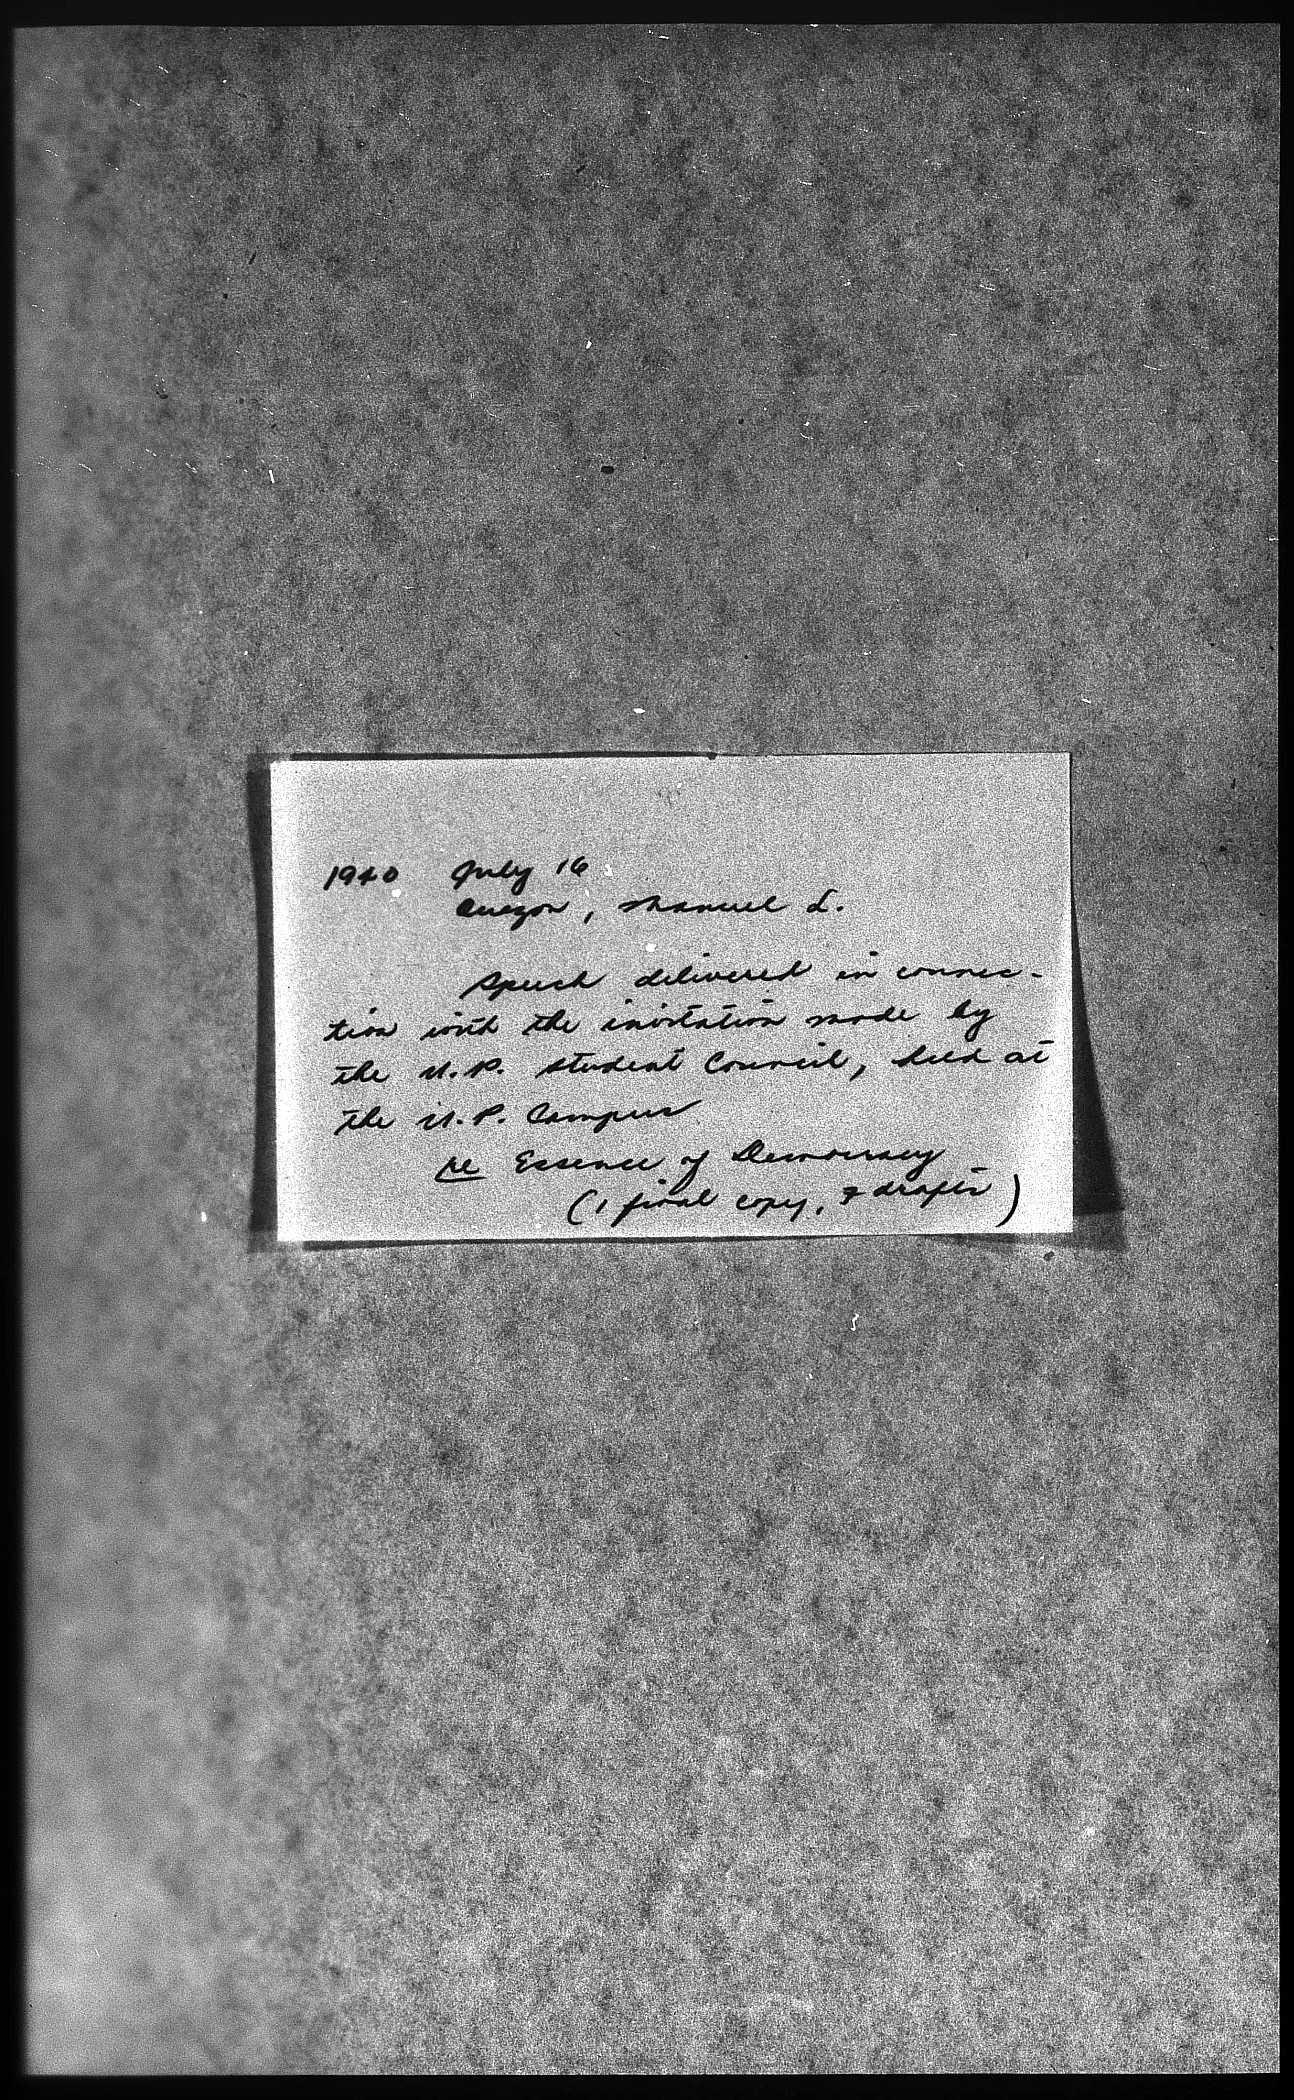 1940 July 16
Quezon, Manuel L.
Speech delivered in connec-
tion with the invitation made by
the U.P. Student Council, held at
the U.P. Campus
re Essence of Democracy
(1 final copy, drafts)